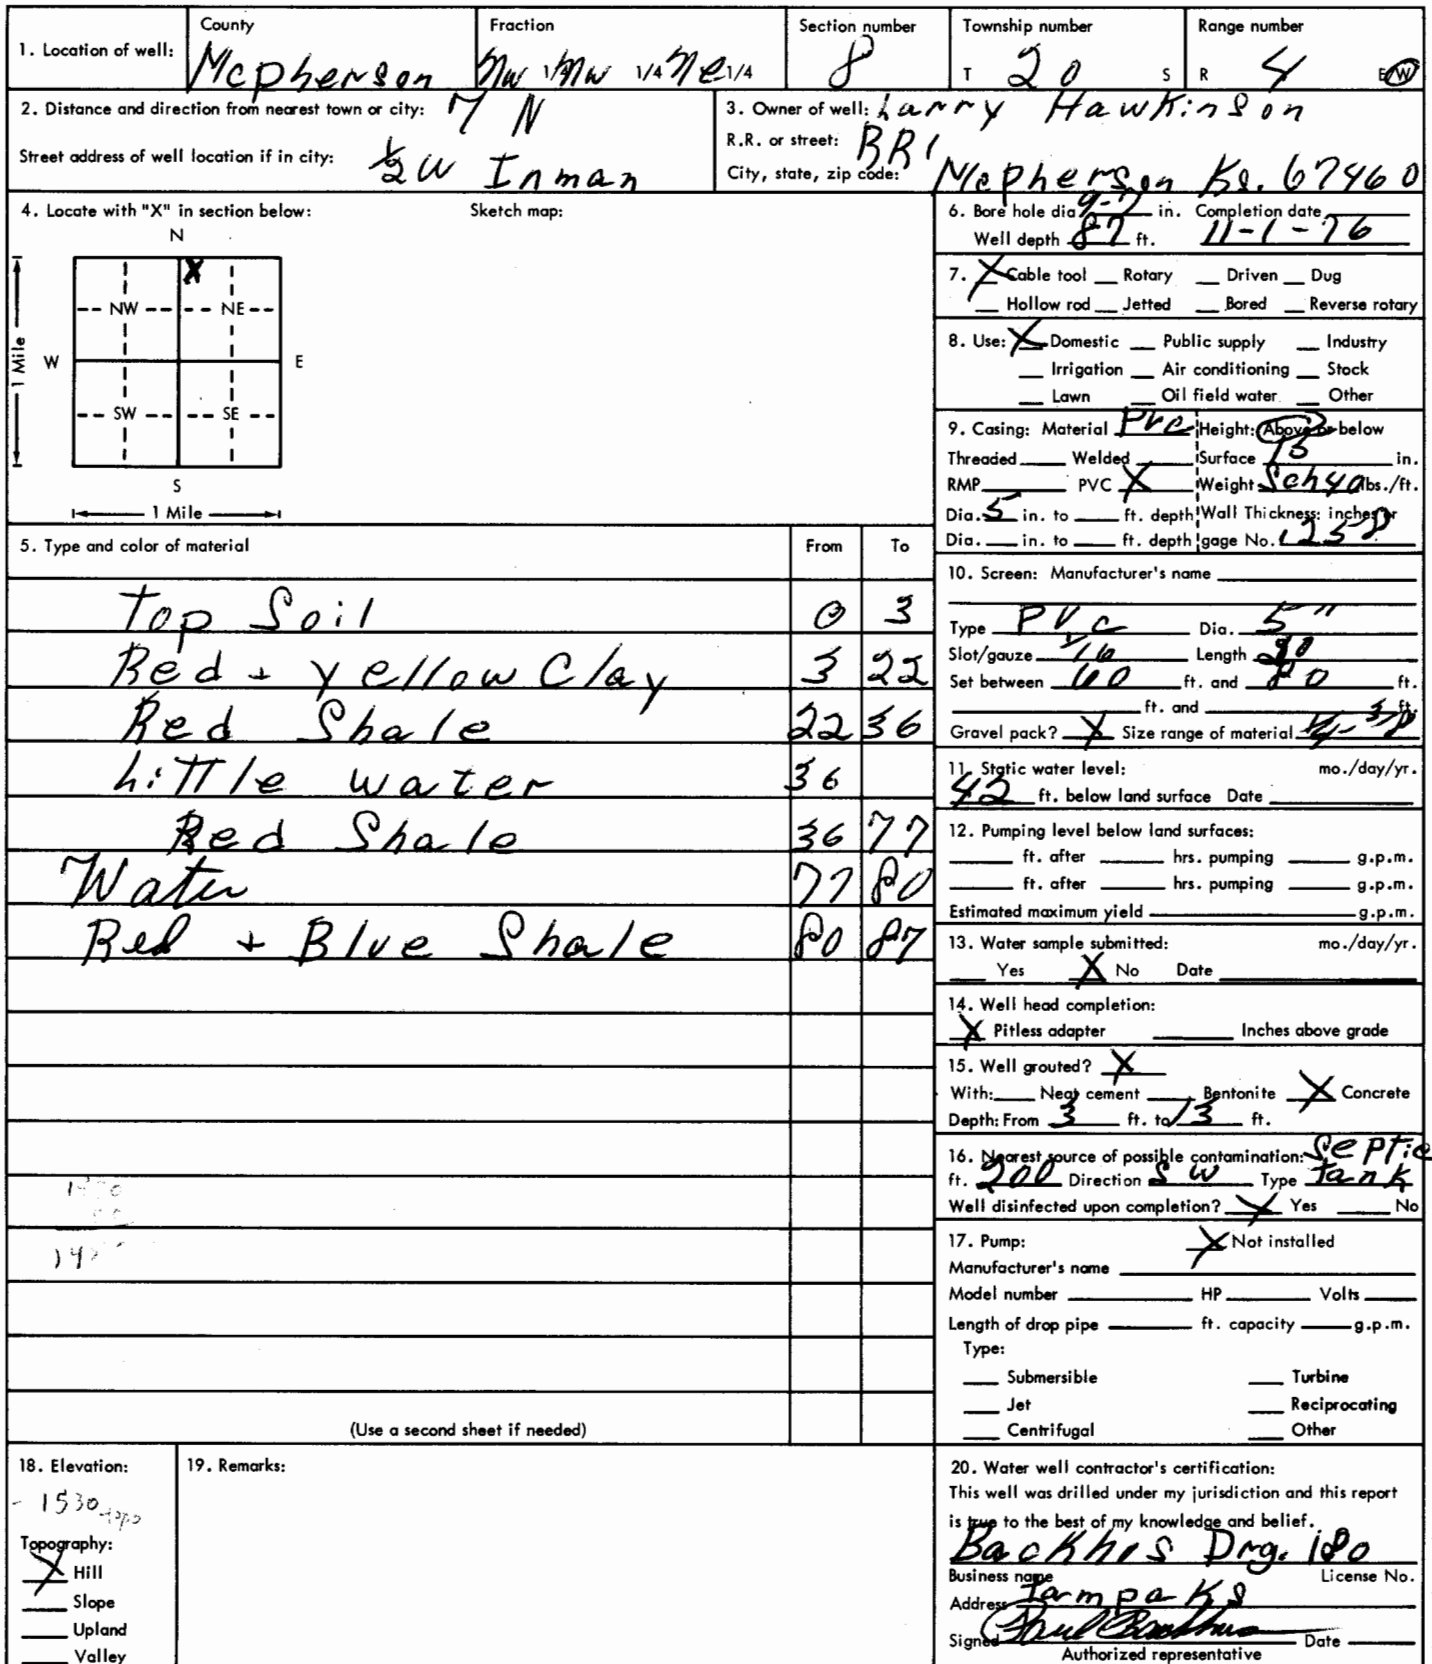 1. Location of well:
County
Mcpherson
Fraction
NW 1/4 NW 1/4 NE 1/4
Section number
8
Township number
T 20 S
Range number
R 4 E/W
2. Distance and direction from nearest town or city: 7 N
Street address of well location if in city: 1/2 W Inman
3. Owner of well: Larry Hawkinson
R.R. or street: RR1
City, state, zip code: Mcpherson Ks. 67460
4. Locate with "X" in section below:
Sketch map:
N
X
NW NE
W E
1 Mile
SW SE
S
1 Mile
5. Type and color of material From To
Top Soil 0 3
Red + yellow Clay 3 22
Red Shale 22 36
Little water 36
Red Shale 36 77
Water 77 80
Red + Blue Shale 80 87
(Use a second sheet if needed)
6. Bore hole dia 9-7 in. Completion date
Well depth 87 ft. 11-1-76
7. X Cable tool Rotary Driven Dug
Hollow rod Jetted Bored Reverse rotary
8. Use: X Domestic Public supply Industry
Irrigation Air conditioning Stock
Lawn Oil field water Other
9. Casing: Material PVC Height: Above or below
Threaded Welded Surface 15 in.
RMP PVC X Weight Sch 40 lbs./ft.
Dia. 5 in. to ft. depth Wall Thickness: inches or
Dia. in. to ft. depth gage No. .258
10. Screen: Manufacturer's name
Type PVC Dia. 5"
Slot/gauze 1/16 Length 20
Set between 60 ft. and 80 ft.
ft. and ft.
Gravel pack? X Size range of material 1/4-3/8
11. Static water level: mo./day/yr.
42 ft. below land surface Date
12. Pumping level below land surfaces:
ft. after hrs. pumping g.p.m.
ft. after hrs. pumping g.p.m.
Estimated maximum yield g.p.m.
13. Water sample submitted: mo./day/yr.
Yes X No Date
14. Well head completion:
X Pitless adapter Inches above grade
15. Well grouted? X
With: Neat cement Bentonite X Concrete
Depth: From 3 ft. to 13 ft.
16. Nearest source of possible contamination: Septic
ft. 200 Direction SW Type Tank
Well disinfected upon completion? X Yes No
17. Pump: X Not installed
Manufacturer's name
Model number HP Volts
Length of drop pipe ft. capacity g.p.m.
Type:
Submersible Turbine
Jet Reciprocating
Centrifugal Other
18. Elevation:
1530 topo
Topography:
X Hill
Slope
Upland
Valley
19. Remarks:
20. Water well contractor's certification:
This well was drilled under my jurisdiction and this report
is true to the best of my knowledge and belief.
Backhus Drg. 180
Business name License No.
Address Tampa KS
Signed Paul Backhus Date
Authorized representative